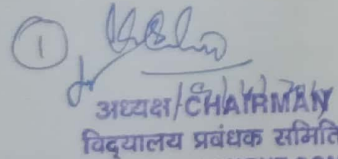 1
अध्यक्ष/CHAIRMAN
विद्यालय प्रबंधक समिति